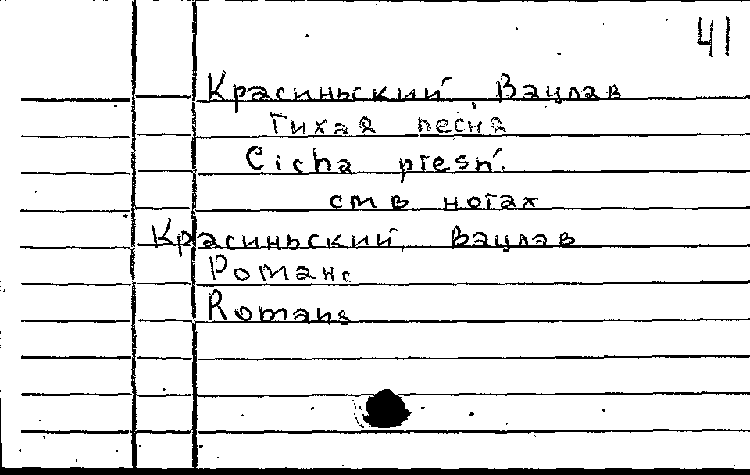 41
Красиньский, Вацлав
Тихая песня
Cicha pieśń.
см в нотах
Красиньский, Вацлав
Романс
Romans